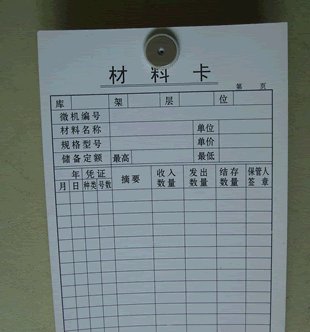 材料卡
第 页
库 架 层 位
微机编号
材料名称 单位
规格型号 单价
储备定额 最高 最低
年 凭证 摘要 收入数量 发出数量 结存数量 保管人签章
月 日 种类 号数